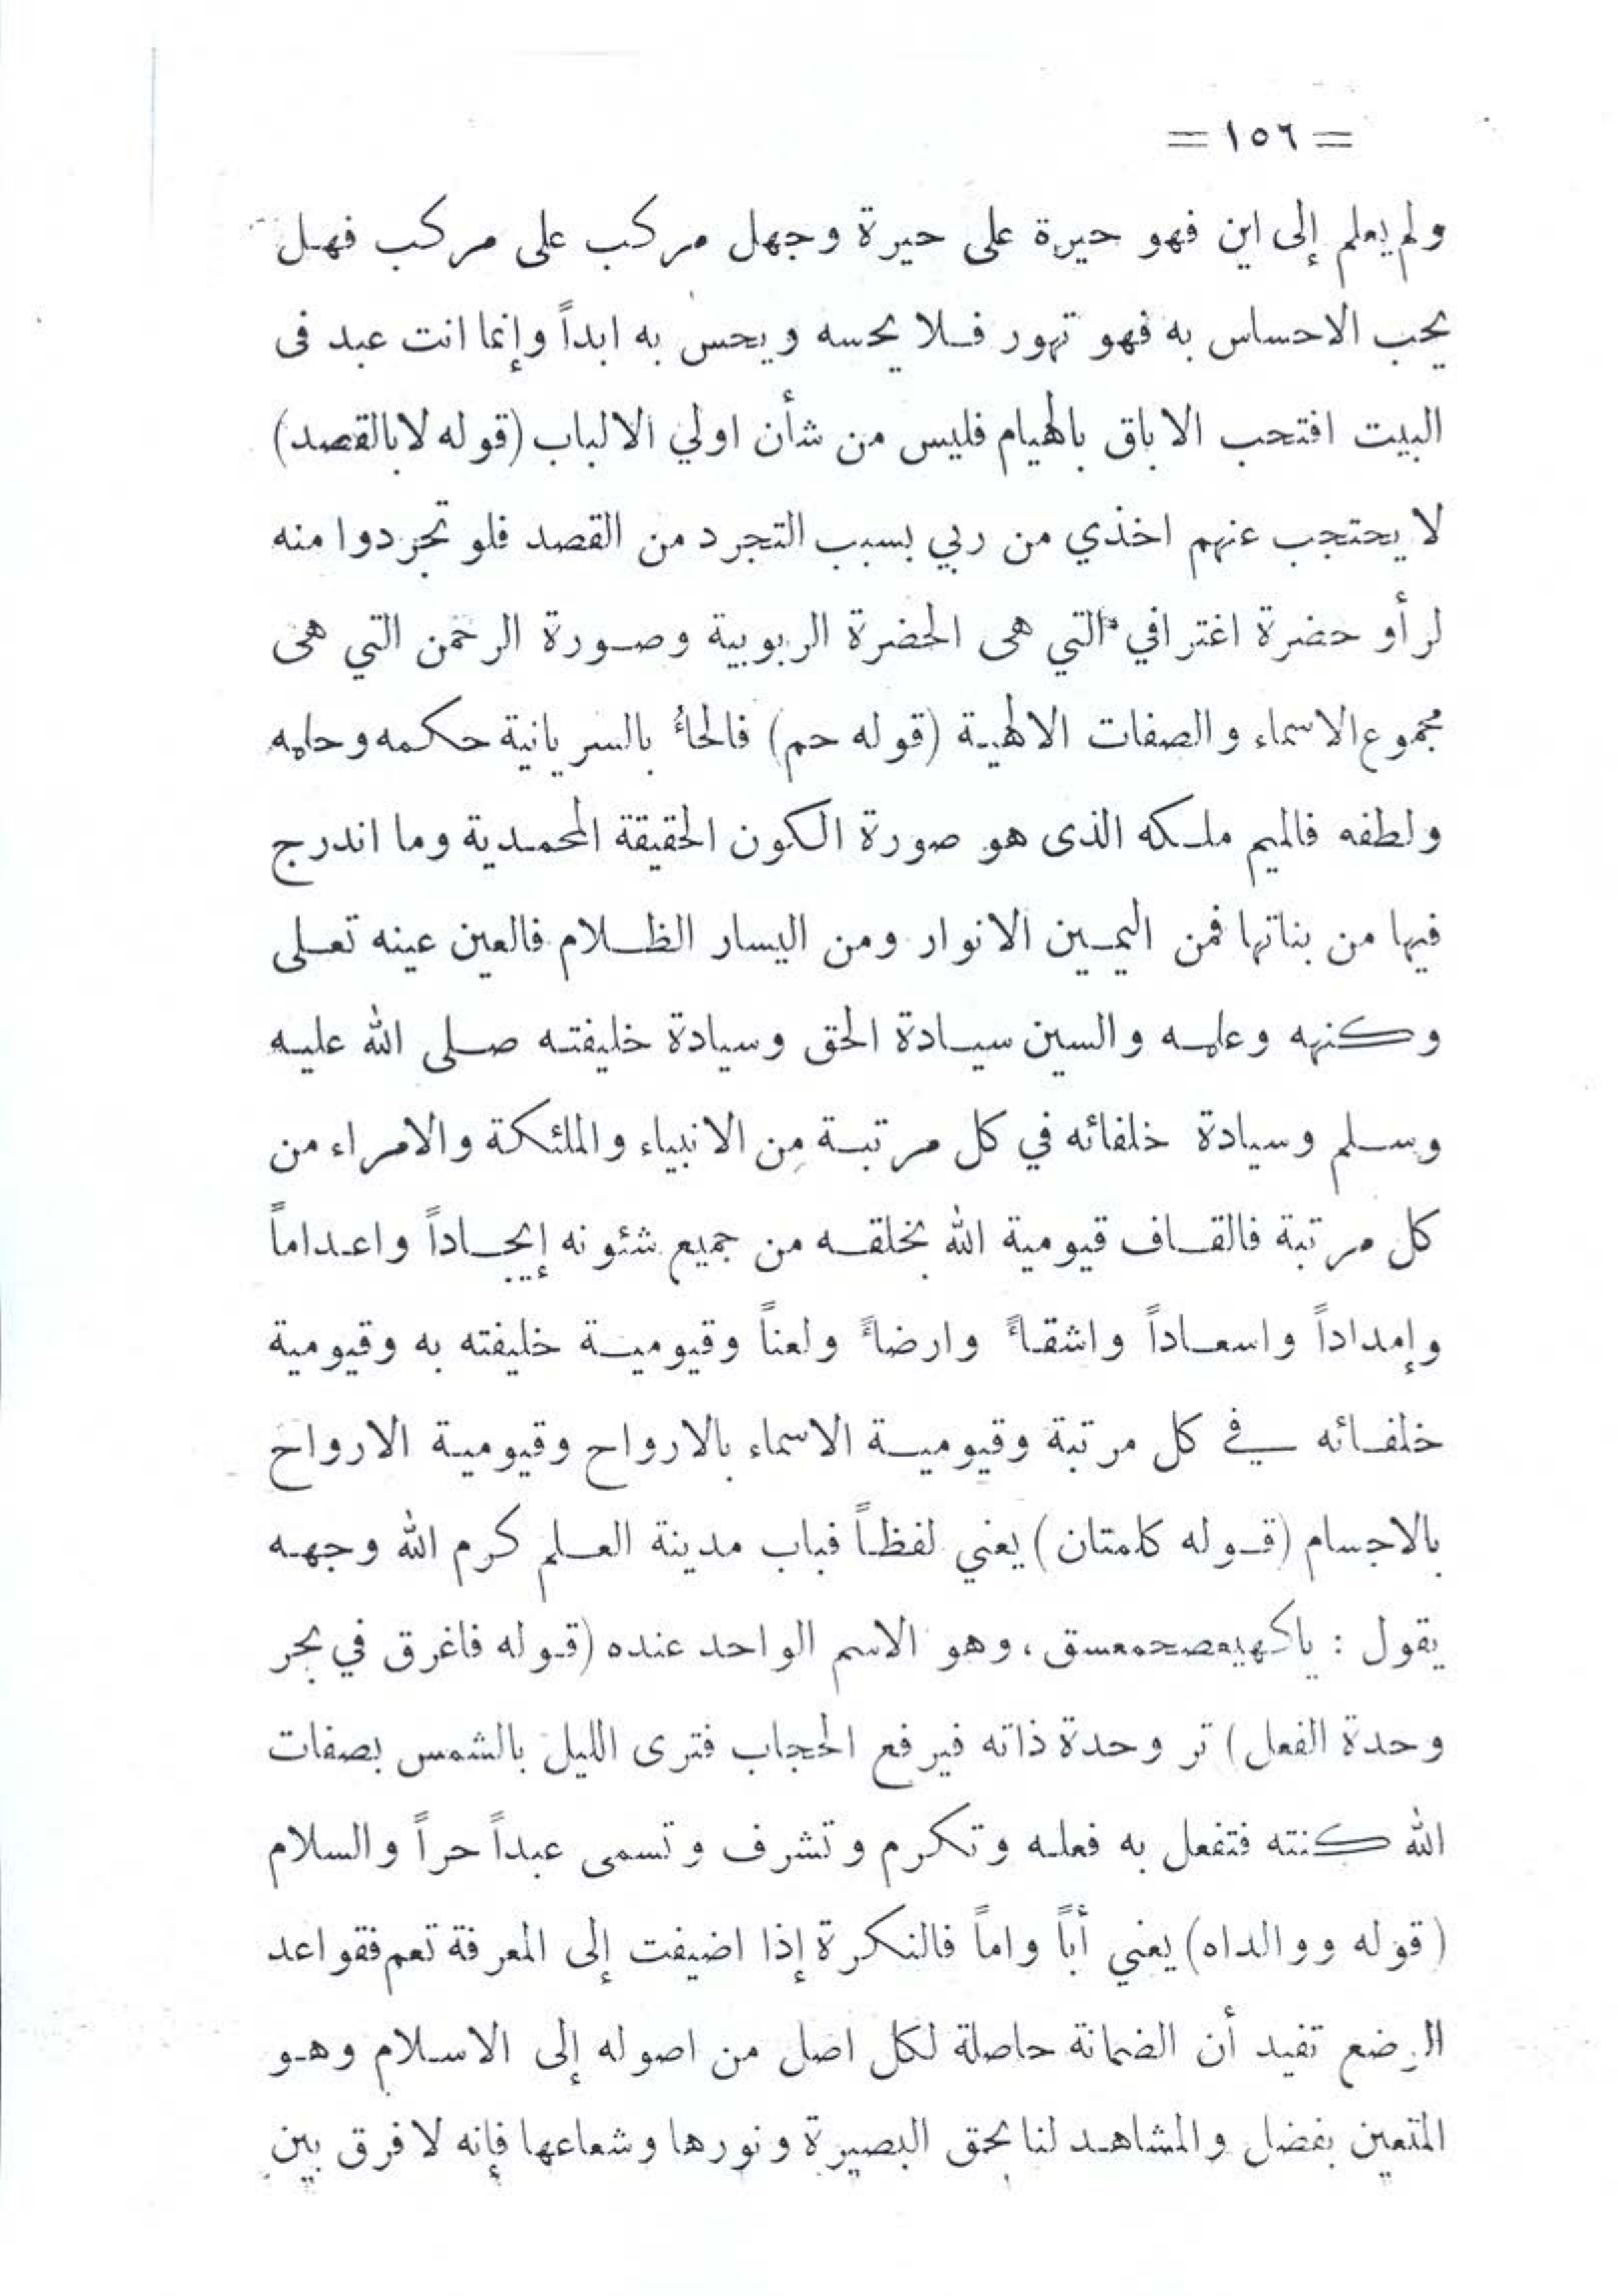 = ١٥٦ =
ولم يعلم إلى اين فهو حيرة على حيرة وجهل مركب على مركب فهل
يحب الاحساس به فهو تهور فلا يحسه ويحس به ابداً وإنما انت عبد فى
البيت افتحب الاباق بالهيام فليس من شأن اولي الالباب (قوله لابالقصد)
لا يحتجب عنهم اخذي من ربي بسبب التجرد من القصد فلو تجردوا منه
لرأو حضرة اغترافي التي هى الحضرة الربوبية وصورة الرحمن التي هى
مجموع الاسماء والصفات الالهية (قوله حم) فالحاءُ بالسريانية حكمه وحلمه
ولطفه فالميم ملكه الذى هو صورة الكون الحقيقة المحمدية وما اندرج
فيها من بناتها فمن اليمين الانوار ومن اليسار الظلام فالعين عينه تعلى
وكنهه وعلمه والسين سيادة الحق وسيادة خليفته صلى الله عليه
وسلم وسيادة خلفائه في كل مرتبة مِن الانبياء والملئكة والامراء من
كل مرتبة فالقاف قيومية الله بخلقه من جميع شئونه إيجاداً واعداماً
وإمداداً واسعاداً واشقاءً وارضاءً ولعناً وقيومية خليفته به وقيومية
خلفائه في كل مرتبة وقيومية الاسماء بالارواح وقيومية الارواح
بالاجسام (قوله كلمتان) يعني لفظاً فباب مدينة العلم كرم الله وجهه
يقول : ياكهيعصحمعسق، وهو الاسم الواحد عنده (قوله فاغرق في بحر
وحدة الفعل) تر وحدة ذاته فيرفع الحجاب فترى الليل بالشمس بصفات
الله كنته فتفعل به فعله وتكرم وتشرف وتسمى عبداً حراً والسلام
(قوله ووالداه) يعني أباً واماً فالنكرة إذا اضيفت إلى المعرفة تعم فقواعد
الرضع تفيد أن الضمانة حاصلة لكل اصل من اصوله إلى الاسلام وهو
المتعين بفضل والمشاهد لنا بحق البصيرة ونورها وشعاعها فإنه لا فرق بين